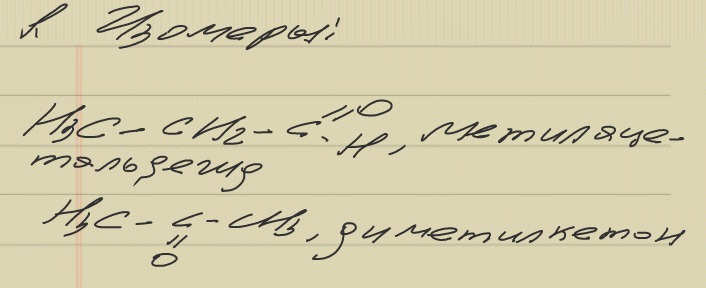 К Изомеры:
H3C - CH2 - C=O, метиляце-
H
тальдегид
H3C - C - CH3, диметилкетон
=
O